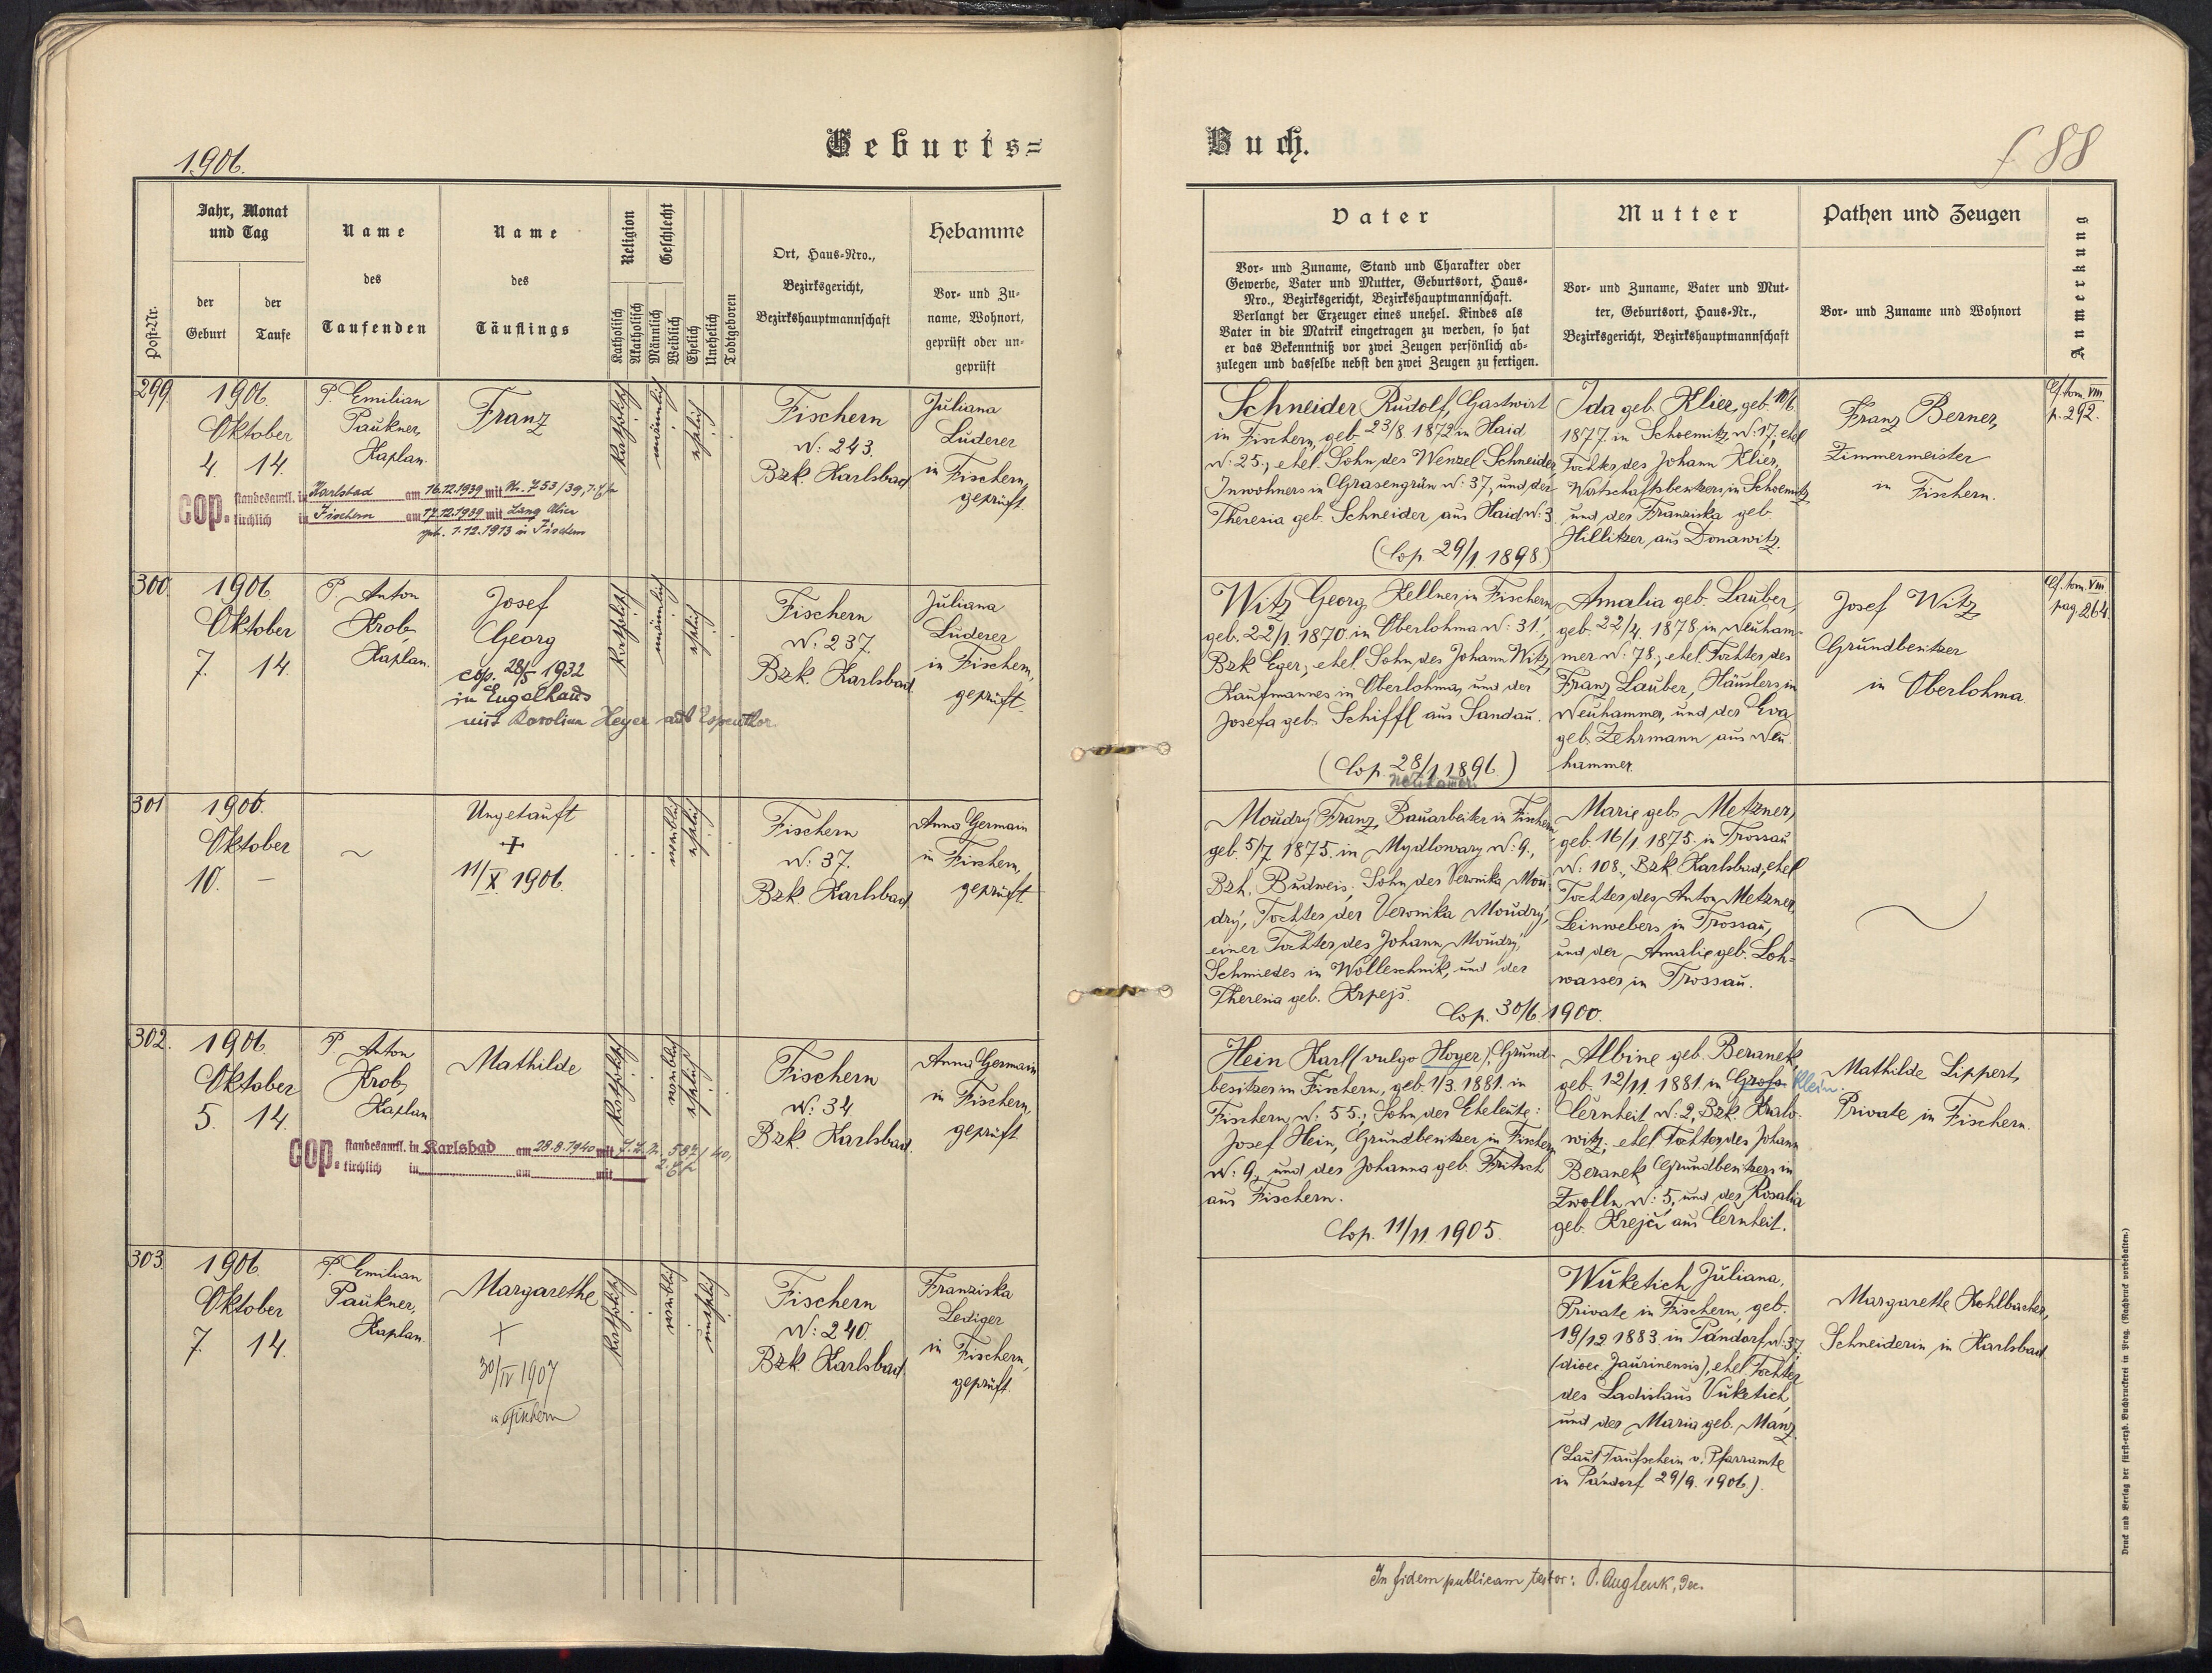 1906.
Geburts=
Buch.
f 88
Post-Nr.
Jahr, Monat
und Tag
der
Geburt
der
Taufe
Name
des
Taufenden
Name
des
Täuflings
Religion
Katholisch
Akatholisch
Geschlecht
Männlich
Weiblich
Ehelich
Unehelich
Todtgeboren
Ort, Haus=Nro.,
Bezirksgericht,
Bezirkshauptmannschaft
Hebamme
Vor= und Zu=
name, Wohnort,
geprüft oder un=
geprüft
Vater
Vor= und Zuname, Stand und Charakter oder
Gewerbe, Vater und Mutter, Geburtsort, Haus=
Nro., Bezirksgericht, Bezirkshauptmannschaft.
Verlangt der Erzeuger eines unehel. Kindes als
Vater in die Matrik eingetragen zu werden, so hat
er das Bekenntniß vor zwei Zeugen persönlich ab=
zulegen und dasselbe nebst den zwei Zeugen zu fertigen.
Mutter
Vor= und Zuname, Vater und Mut=
ter, Geburtsort, Haus=Nr.,
Bezirksgericht, Bezirkshauptmannschaft
Pathen und Zeugen
Vor= und Zuname und Wohnort
Anmerkung
299
1906
Oktober
4. 14.
P. Emilian
Paukner,
Kaplan.
Franz
cop. standesamtl. in Karlsbad am 16.12.1939 mit Nr. 753/39,
kirchlich in Fischern am 17.12.1939 mit Lang Alice
geb. 1.12.1913 in Fischern
katholisch
männlich
ehelich
Fischern
N: 243.
Bzk. Karlsbad
Juliana
Lüderer
in Fischern,
geprüft.
Schneider Rudolf, Gastwirt
in Fischern, geb. 23/8. 1872 in Haid
N: 25., ehel. Sohn des Wenzel Schneider
Inwohners in Grasengrün N: 37, und der
Theresia geb. Schneider aus Haid N: 3.
(Cop. 29/1. 1898.)
Ida geb. Klier, geb. 10/6.
1877. in Schoemitz N: 17; ehel
Tochter des Johann Klier,
Wirtschaftsbesitzers in Schoemitz
und der Franziska geb.
Hillitzer aus Donawitz.
Franz Berner,
Zimmermeister
in Fischern.
Cf. tom. VIII
p. 292.
300.
1906
Oktober
7. 14.
P. Anton
Krob,
Kaplan.
Josef
Georg
cop. 28/5 1932
in Engelhaus
mit Karolina Heyer aus Espenthor
katholisch
männlich
ehelich
Fischern
N: 237.
Bzk. Karlsbad.
Juliana
Lüderer
in Fischern,
geprüft.
Witz Georg, Kellner in Fischern
geb. 22/1. 1870. in Oberlohma N: 31.,
Bzk Eger, ehel. Sohn des Johann Witz,
Kaufmannes in Oberlohma, und der
Josefa geb. Schiffl aus Sandau.
(Cop. 28/1 1896.)
Neuhamer.
Amalia geb. Lauber,
geb. 22/4. 1878, in Neuham-
mer N: 78., ehel. Tochter des
Franz Lauber, Häuslers in
Neuhammer, und der Eva
geb. Zehrmann aus Neu
hammer.
Josef Witz
Grundbesitzer
in Oberlohma.
Cf. tom. VIII
pag 264.
301
1906.
Oktober
10. –
~
Ungetauft
+
11/X 1906.
weiblich
ehelich
Fischern
N: 37.
Bzk. Karlsbad.
Anna Germain
in Fischern,
geprüft.
Moudrý Franz, Bauarbeiter in Fischern
geb. 5/7. 1875. in Mydlowary N: 9.,
Bzh. Budweis; Sohn der Veronika Mou
drý, Tochter der Veronika Moudrý,
einer Tochter des Johann Moudrý,
Schmiedes in Wolleschnik, und der
Theresia geb. Krpejš.
Cop. 30/6. 1900.
Marie geb. Metzner,
geb. 16/1. 1875. in Trossau
N: 108., Bzk. Karlsbad, ehel
Tochter des Anton Metzner,
Leinwebers in Trossau,
und der Amalie geb. Loh=
wasser in Trossau.
~
302.
1906
Oktober
5. 14.
P. Anton
Krob,
Kaplan
Mathilde
cop. standesamtl. in Karlsbad am 28.8.1940 mit 587/40,
kirchlich in am mit
katholisch
weiblich
ehelich
Fischern
N: 34.
Bzk. Karlsbad.
Anna Germain
in Fischern,
geprüft
Hein Karl (vulgo Hoyer), Grund-
besitzer in Fischern, geb. 1/3. 1881. in
Fischern, N: 55., Sohn der Eheleute:
Josef Hein, Grundbesitzer in Fischern
N: 9, und der Johanna geb. Fritsch
aus Fischern.
Cop. 11/11. 1905.
Albine geb. Beranek,
geb. 12/11. 1881. in Groß Klein.
Černheit N: 2, Bzk. Kralo-
witz; ehel Tochter des Johann
Beranek Grundbesitzers in
Zwolln N: 5, und der Rosalia
geb. Krejčí aus Černheit.
Mathilde Lippert,
Private in Fischern.
303.
1906.
Oktober
7. 14.
P. Emilian
Paukner,
Kaplan.
Margarethe
+
30/IV 1907
in Fischern
katholisch
weiblich
unehelich
Fischern
N: 240.
Bzk. Karlsbad.
Franziska
Lediger
in Fischern,
geprüft.
Wuketich Juliana,
Private in Fischern, geb.
19/12 1883. in Pándorf N: 37.
(dioec. Jaurinensis), ehel. Tochter
des Ladislaus Vuketich,
und der Maria geb. Manz.
(Laut Taufschein v. Pfarramte
in Pándorf 29/9. 1906.)
Margarethe Kohlbacher,
Schneiderin in Karlsbad.
In fidem publicam testor:
Druck und Verlag der fürst=erzb. Buchdruckerei in Prag. (Nachdruck vorbehalten.)